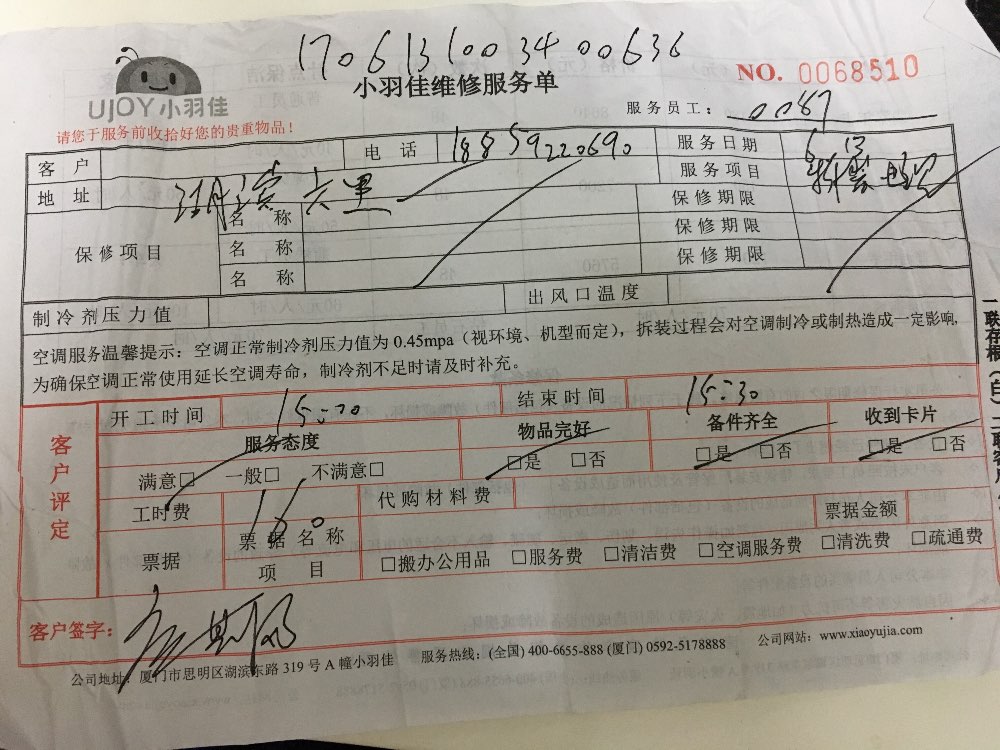 17061310003400636
小羽佳维修服务单
NO. 0068510
UJOY小羽佳
服务员工： 0087
请您于服务前收拾好您的贵重物品！
客 户 电 话 18859220690 服务日期 6 13
地 址 六里 服务项目
保修项目 名 称 保修期限
名 称 保修期限
名 称 保修期限
制冷剂压力值 出风口温度
空调服务温馨提示：空调正常制冷剂压力值为 0.45mpa（视环境、机型而定），拆装过程会对空调制冷或制热造成一定影响,
为确保空调正常使用延长空调寿命，制冷剂不足时请及时补充。
客户评定
开工时间 15:20 结束时间 15:30
服务态度 物品完好 备件齐全 收到卡片
满意□ 一般□ 不满意□ □是 □否 □是 □否 □是 □否
工时费 100 代购材料费
票据 票据名称 票据金额
项 目 □搬办公用品 □服务费 □清洁费 □空调服务费 □清洗费 □疏通费
客户签字：
公司地址：厦门市思明区湖滨东路 319 号 A 幢小羽佳 服务热线：(全国) 400-6655-888 (厦门) 0592-5178888 公司网站：www.xiaoyujia.com
一联存根（白）二联客户